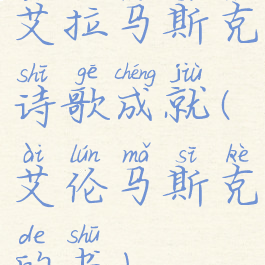 艾拉马斯克
shī gē chéng jiù
诗歌成就(
ài lún mǎ sī kè
艾伦马斯克
de shū
的书)